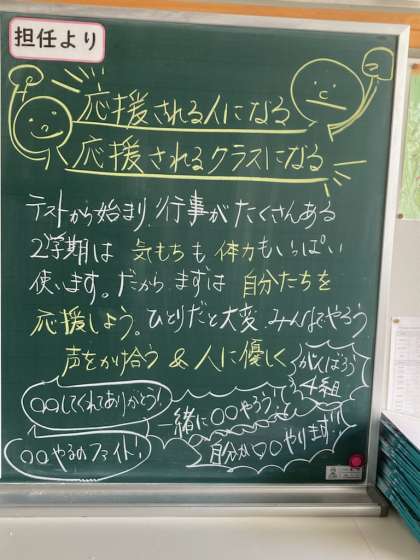 担任より
応援される人になる
応援されるクラスになる
テストから始まり、行事がたくさんある
2学期は 気もちも 体力もいっぱい
使います。だから まずは 自分たちを
応援しよう。ひとりだと大変。みんなでやろう
声をかけ合う & 人に優しく
がんばろう
4組
〇〇してくれてありがとう!
一緒に〇〇やろう!!
〇〇やるのファイト!
自分が〇〇やります!!